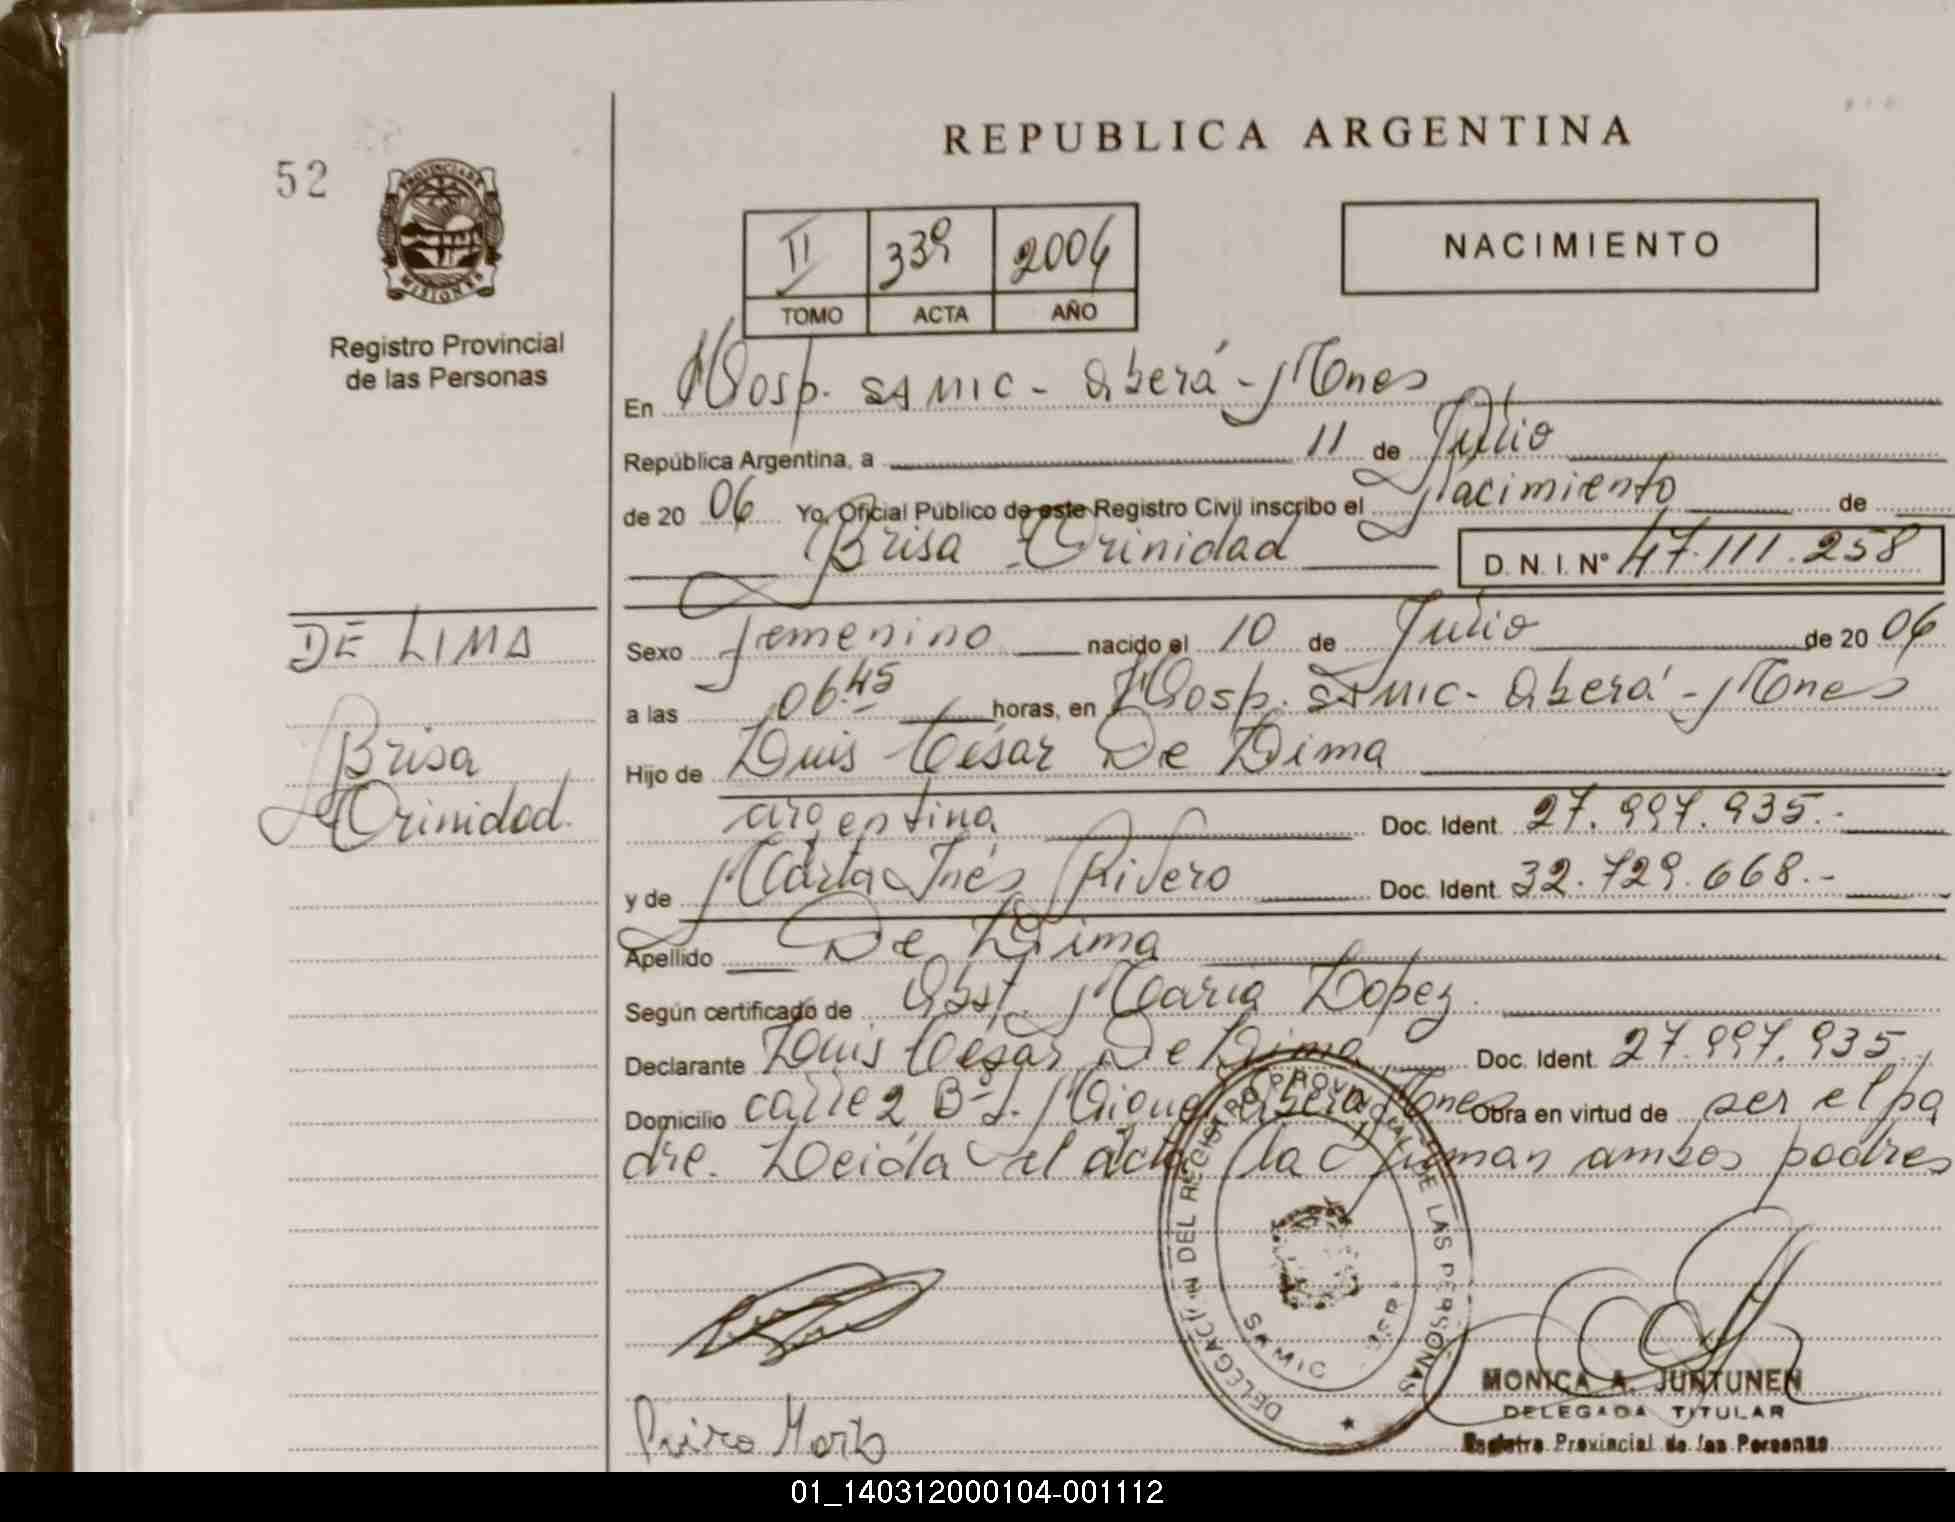 REPUBLICA ARGENTINA
52
PROVINCIA DE
MISIONES
Registro Provincial
de las Personas
II 339 2006
TOMO ACTA AÑO
NACIMIENTO
En Hosp. SAMIC - Oberá - Mnes
República Argentina, a 11 de Julio
de 20 06 Yo, Oficial Público de este Registro Civil inscribo el Nacimiento de
Brisa Trinidad D. N. I. Nº 47.111.258
DE LIMA
Brisa
Trinidad.
Sexo femenino nacido el 10 de Julio de 20 06
a las 06.45 horas, en Hosp. SAMIC - Oberá - Mnes
Hijo de Luis César De Lima
argentina Doc. Ident. 27.997.935.-
y de Marta Inés Rivero Doc. Ident. 32.729.668.-
Apellido De Lima
Según certificado de Obst. María Lopez.
Declarante Luis César De Lima Doc. Ident. 27.997.935.
Domicilio calle 2 Bº Oberá Mnes Obra en virtud de ser el pa
dre. Leída el acta la firman ambos padres
DELEGACION DEL REGISTRO PROVINCIAL DE LAS PERSONAS
SAMIC
MONICA A. JUNTUNEN
DELEGADA TITULAR
Registro Provincial de las Personas
01_140312000104-001112